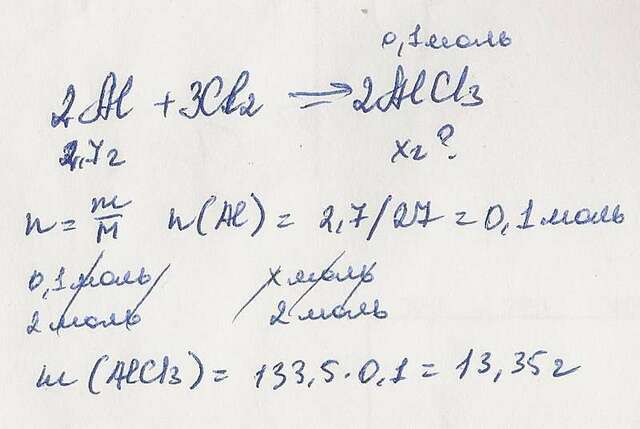 0,1моль
2Al + 3Cl2 ⟹ 2AlCl3
2,7г xг?
n = m/M n(Al) = 2,7/27 = 0,1моль
0,1моль xмоль
2моль 2моль
m(AlCl3) = 133,5·0,1 = 13,35г